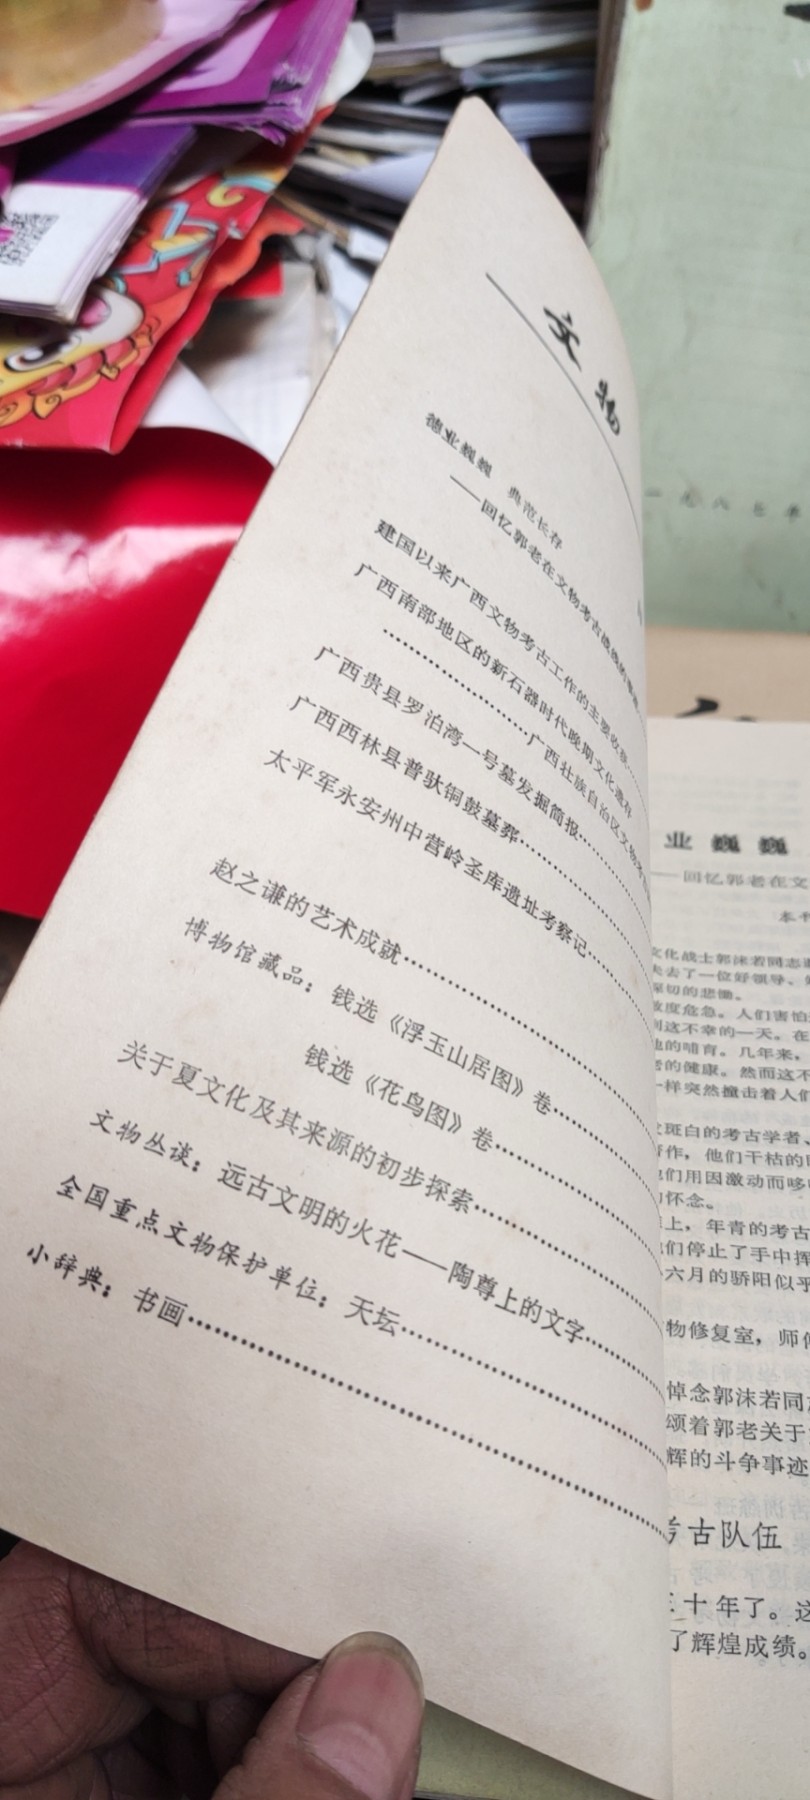 文物
德业巍巍 典范长存
——回忆郭老在文物考古战线的
建国以来广西文物考古工作的主要收获……
广西南部地区的新石器时代晚期文化遗存
……………………广西壮族自治区文物考
广西贵县罗泊湾一号墓发掘简报……
广西西林县普驮铜鼓墓葬……
太平军永安州中营岭圣库遗址考察记……
赵之谦的艺术成就……
博物馆藏品：钱选《浮玉山居图》卷……
钱选《花鸟图》卷……
关于夏文化及其来源的初步探索……
文物丛谈：远古文明的火花——陶尊上的文字……
全国重点文物保护单位：天坛……
小辞典：书画……
业巍巍
——回忆郭老在文
本书
文化战士郭沫若同志
失去了一位好领导、
深切的悲恸。
度危急。人们害怕
这不幸的一天。在
的哺育。几年来，
的健康。然而这不
一样突然撞击着人们
斑白的考古学者、
作，他们干枯的
们用因激动而哆
怀念。
上，年青的考古
们停止了手中挥
六月的骄阳似乎
物修复室，师
悼念郭沫若同
颂着郭老关于
辉的斗争事迹
考古队伍
三十年了。这
了辉煌成绩。